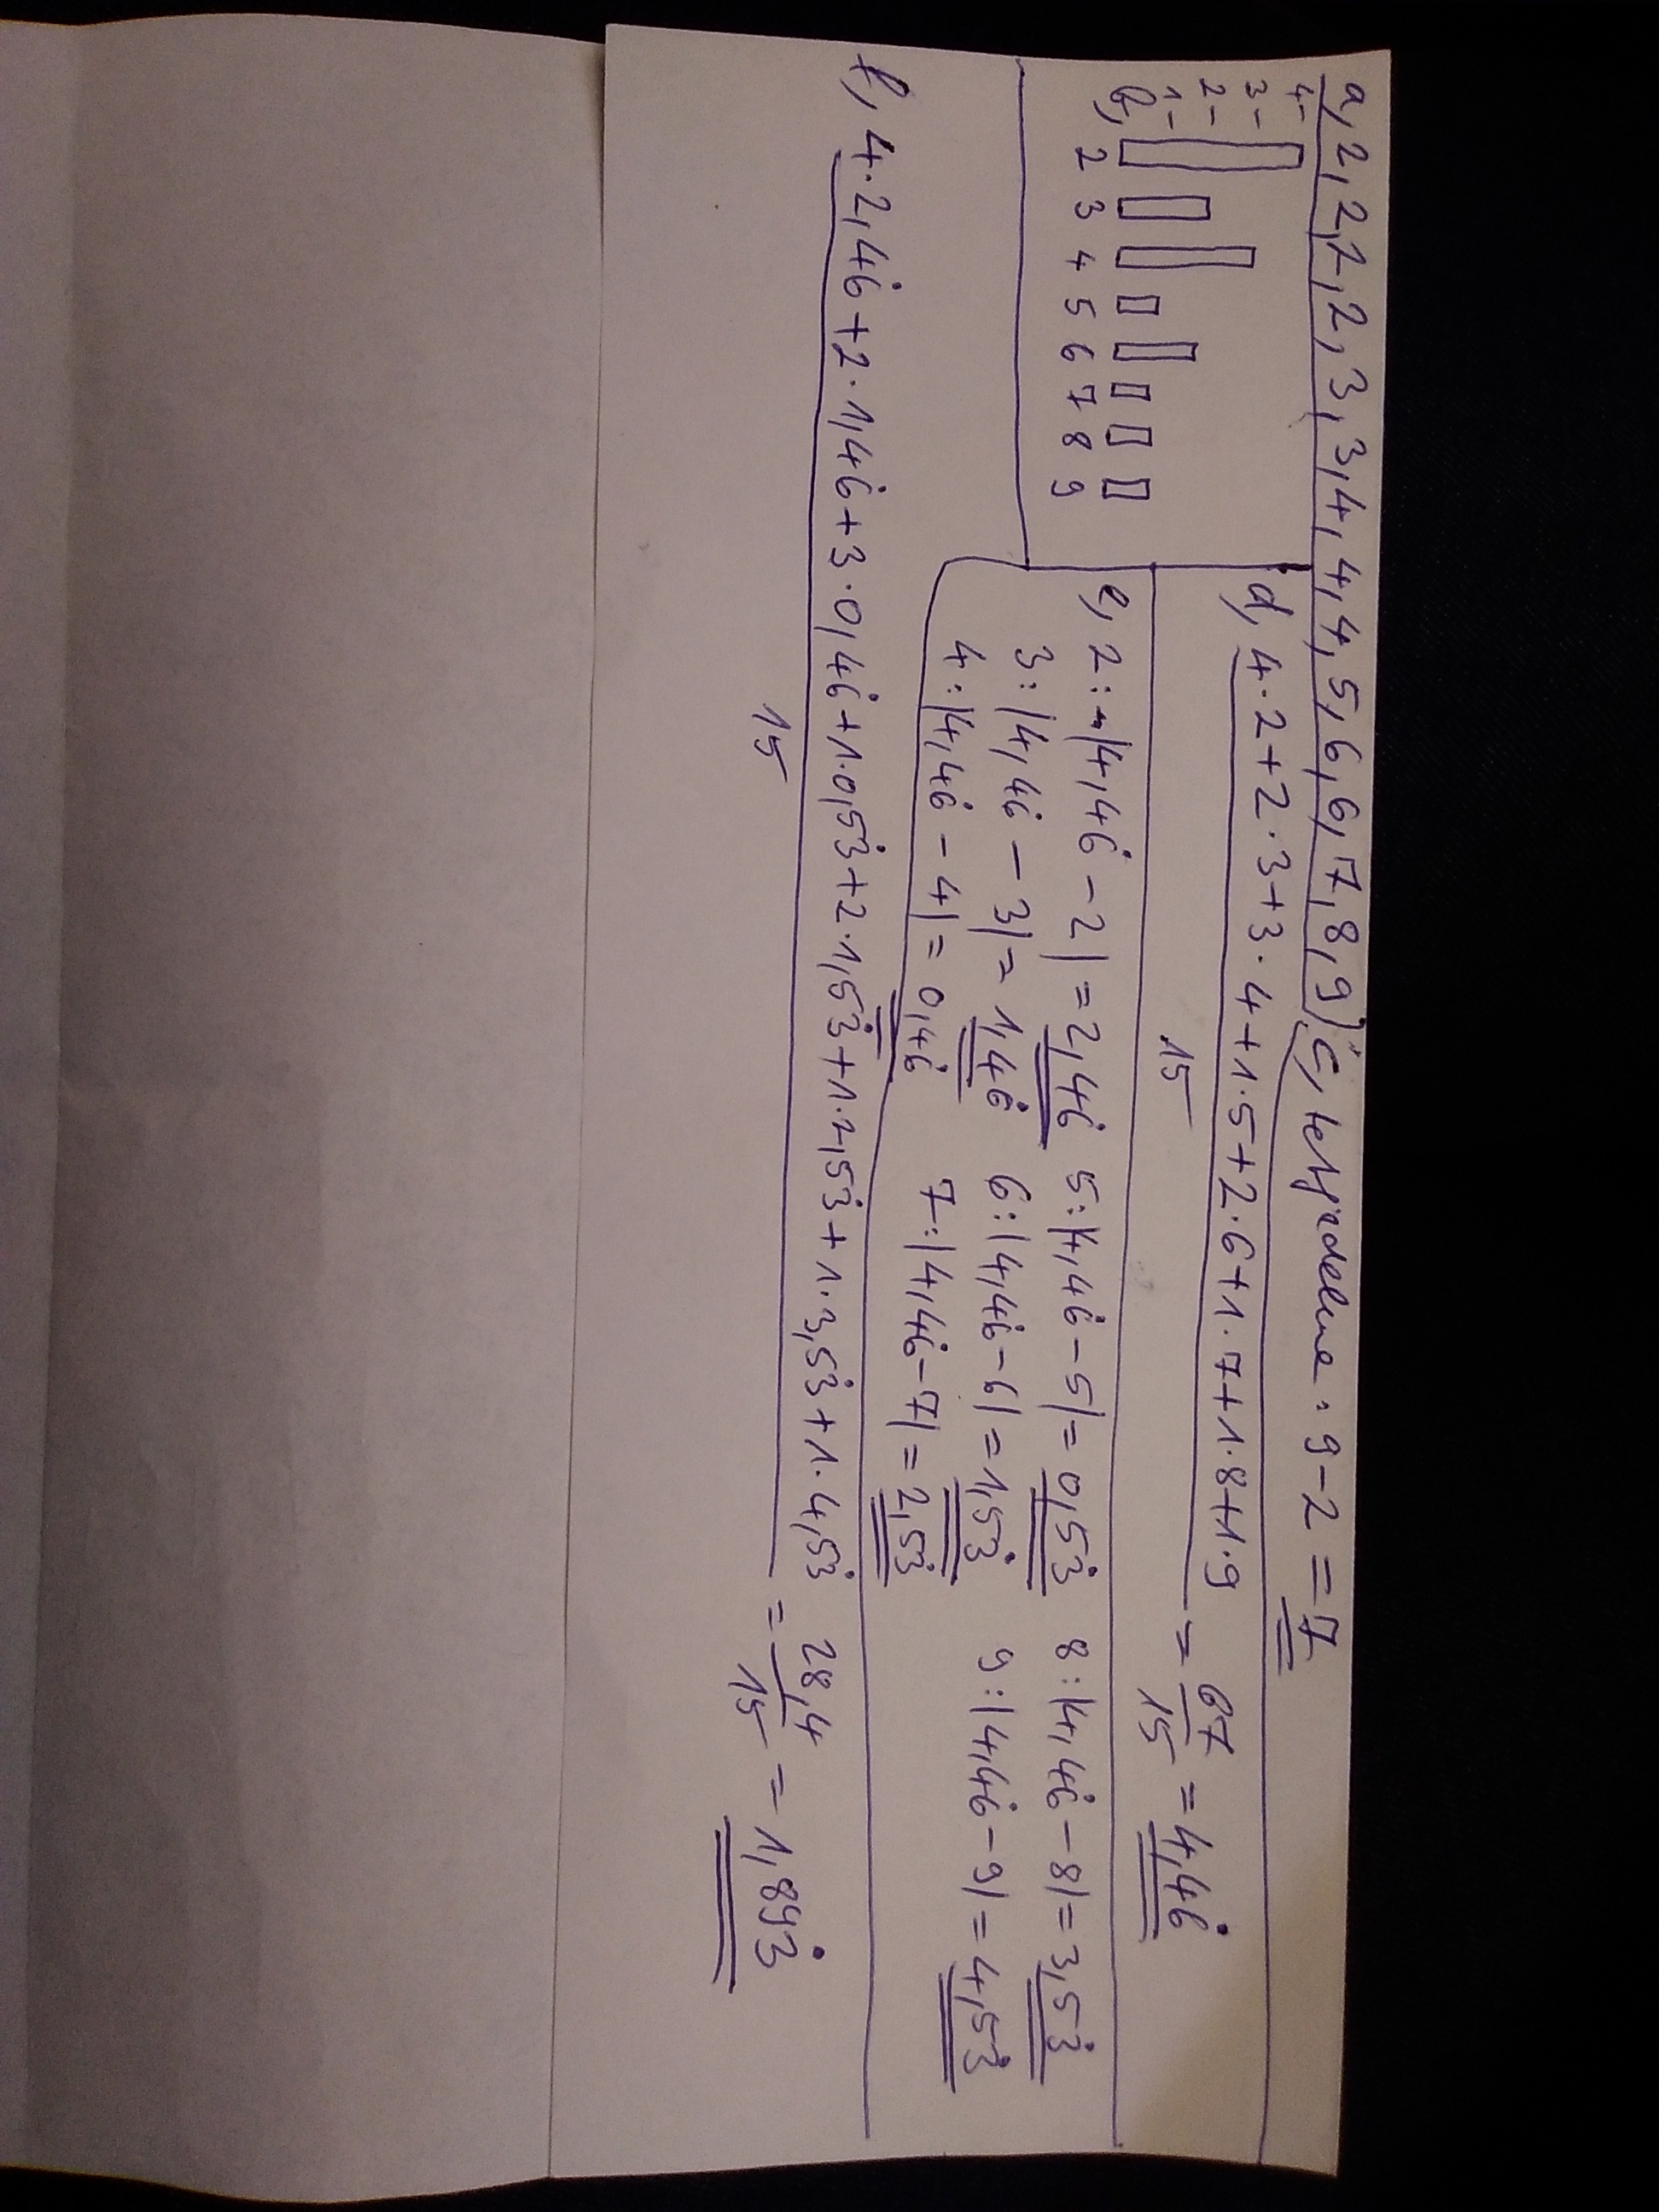 a, 2, 2, 2, 2, 3, 3, 4, 4, 4, 5, 6, 6, 7, 8, 9; c, terjedelme: 9-2 = 7
4-
3-
2-
1-
b,
2 3 4 5 6 7 8 9
d, 4·2+2·3+3·4+1·5+2·6+1·7+1·8+1·9 = 67 = 4,46̇
15 15
e, 2: |4,46̇ - 2| = 2,46̇ 5: |4,46̇ - 5| = 0,53̇ 8: |4,46̇ - 8| = 3,53̇
3: |4,46̇ - 3| = 1,46̇ 6: |4,46̇ - 6| = 1,53̇ 9: |4,46̇ - 9| = 4,53̇
4: |4,46̇ - 4| = 0,46̇ 7: |4,46̇ - 7| = 2,53̇
f, 4·2,46̇+2·1,46̇+3·0,46̇+1·0,53̇+2·1,53̇+1·2,53̇+1·3,53̇+1·4,53̇ = 28,4 = 1,893̇
15 15